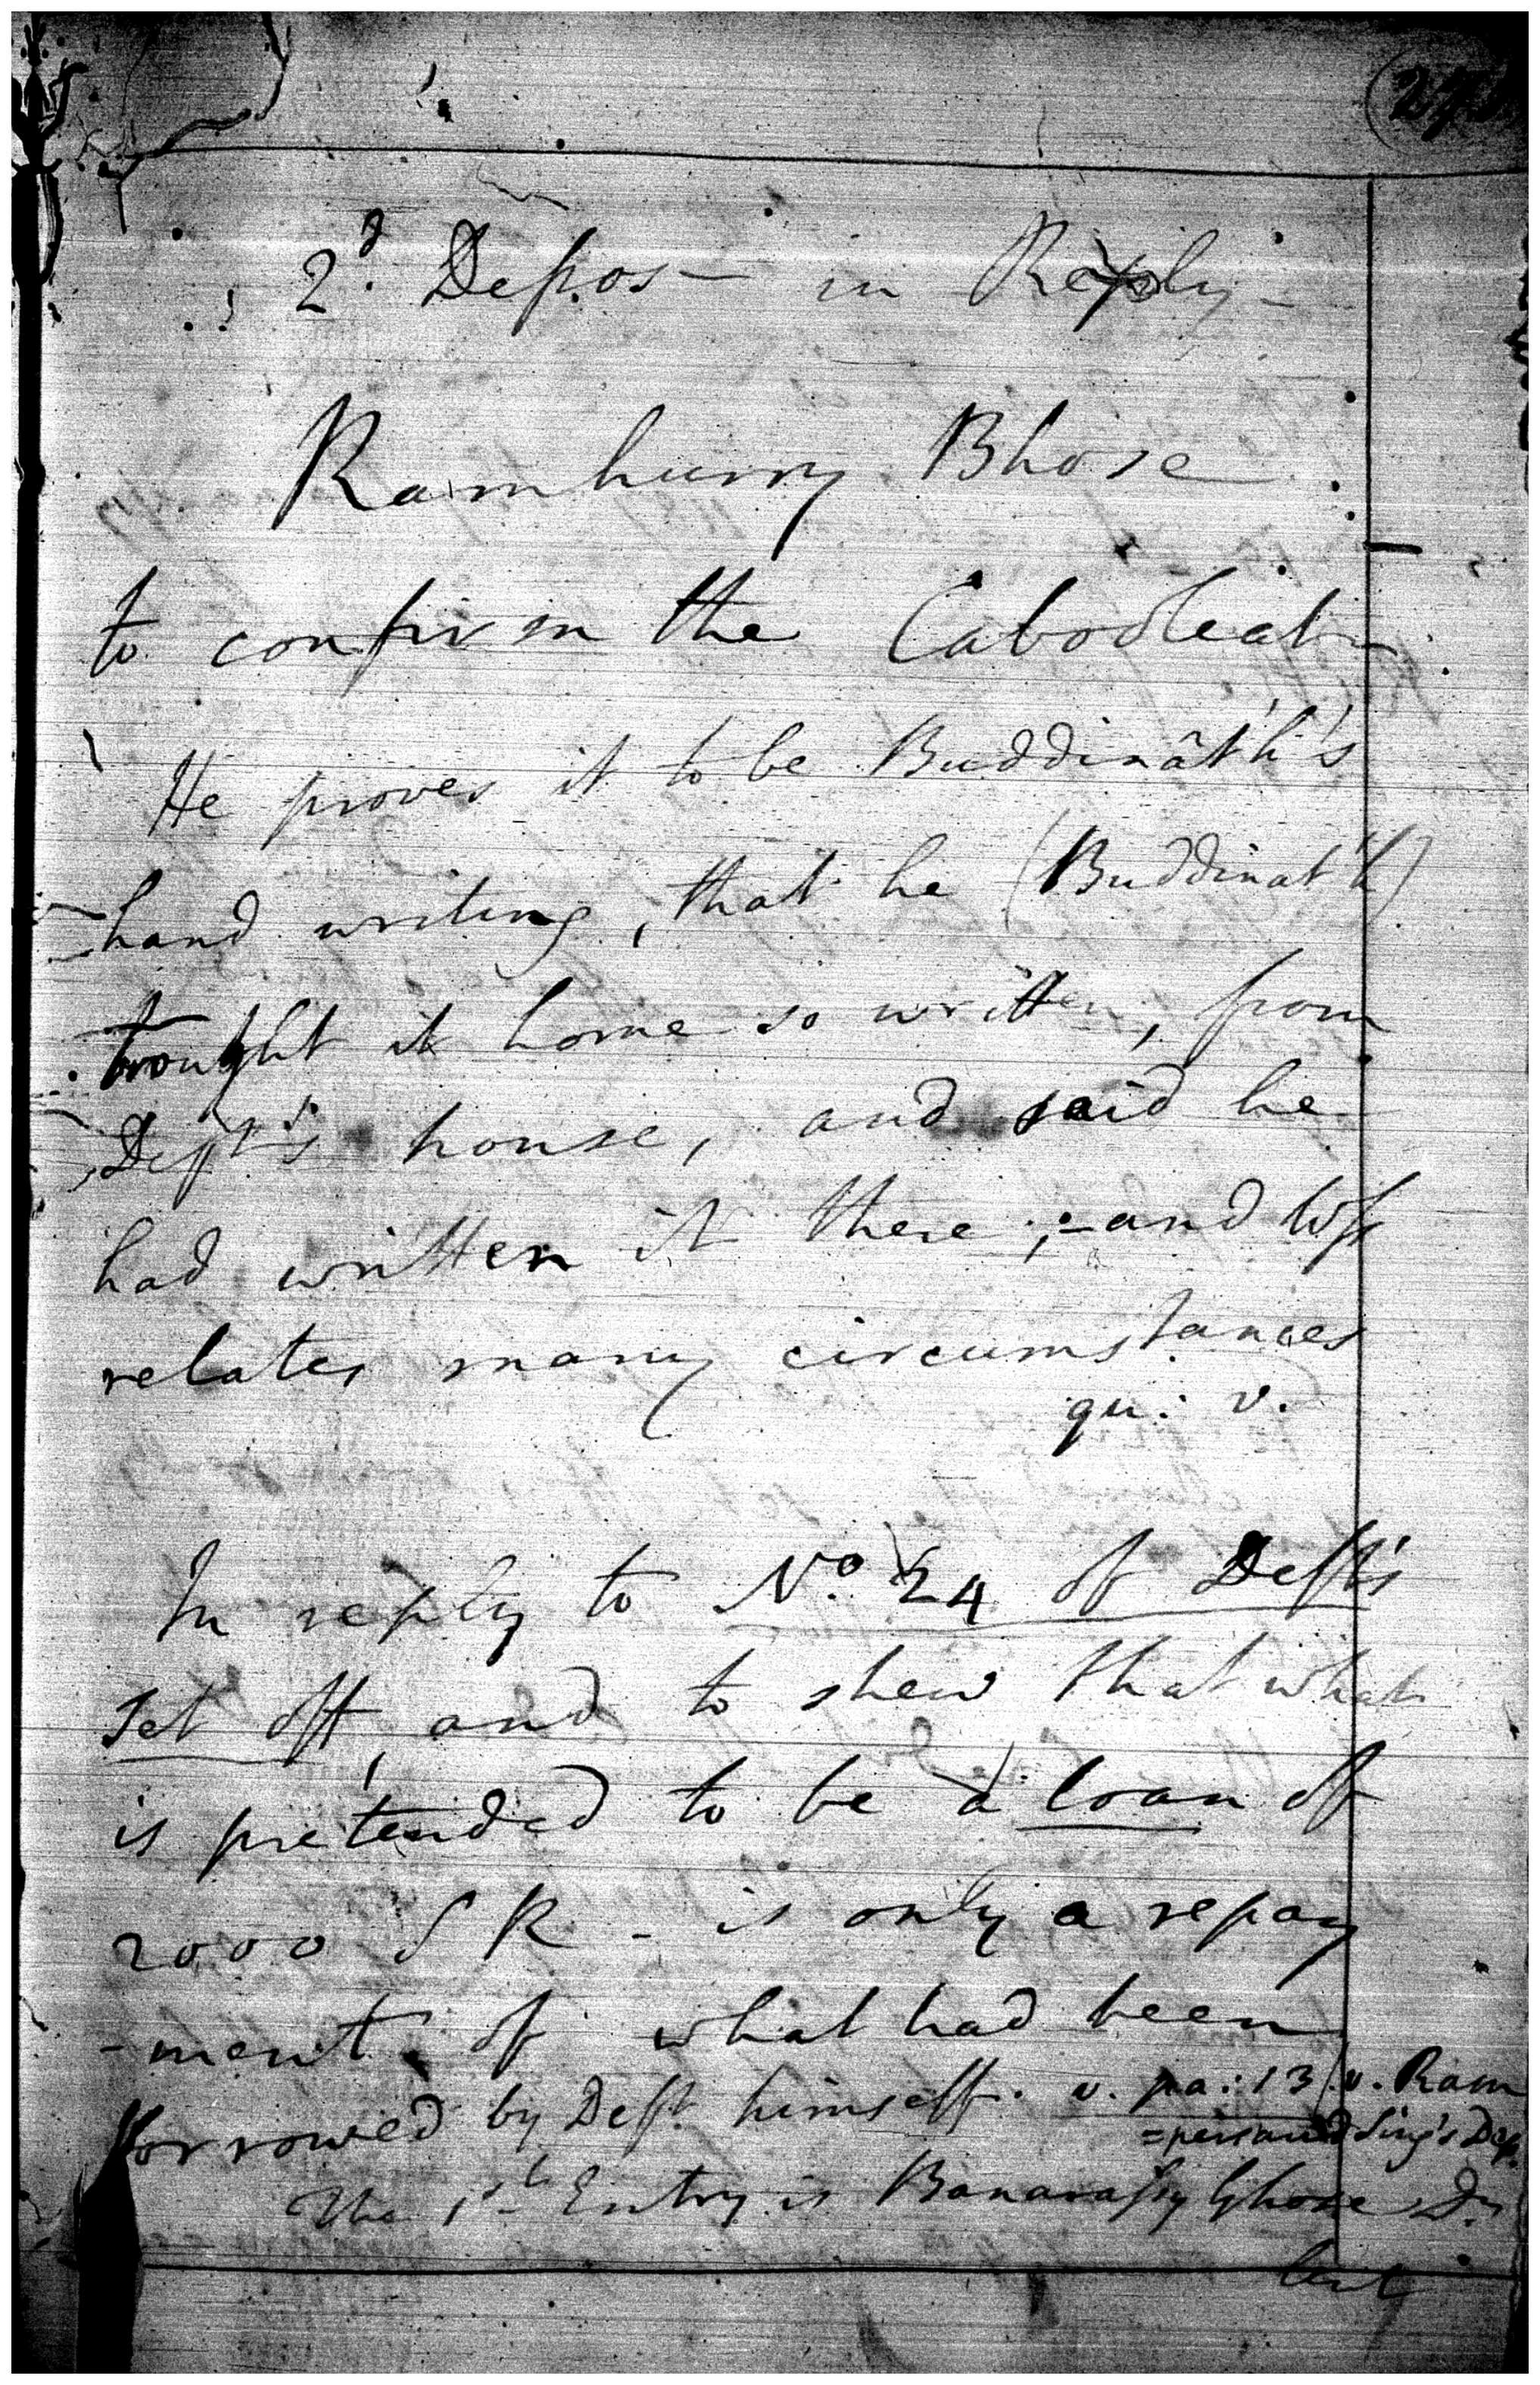 2d. Depos— in Reply—
Ramhurry Bhose
to confirm the Cabooleat—
He proves it to be Buddinât'h's
hand writing, that he (Buddinat'h)
brought it home so written, from
Deft's house, and said he
had written it there;—and Wss
relates many circumstances
qu: v.
In reply to No. 24 of Deft's
set off, and to shew that what
is pretended to be a loan of
2000 S R - is only a repay
-ment of what had been
borrowed by Deft himself. v. pa: 13/v. Ram
=persaud Sing's Dep.
The 1st Entry is Banarassy Ghose Dr
lent